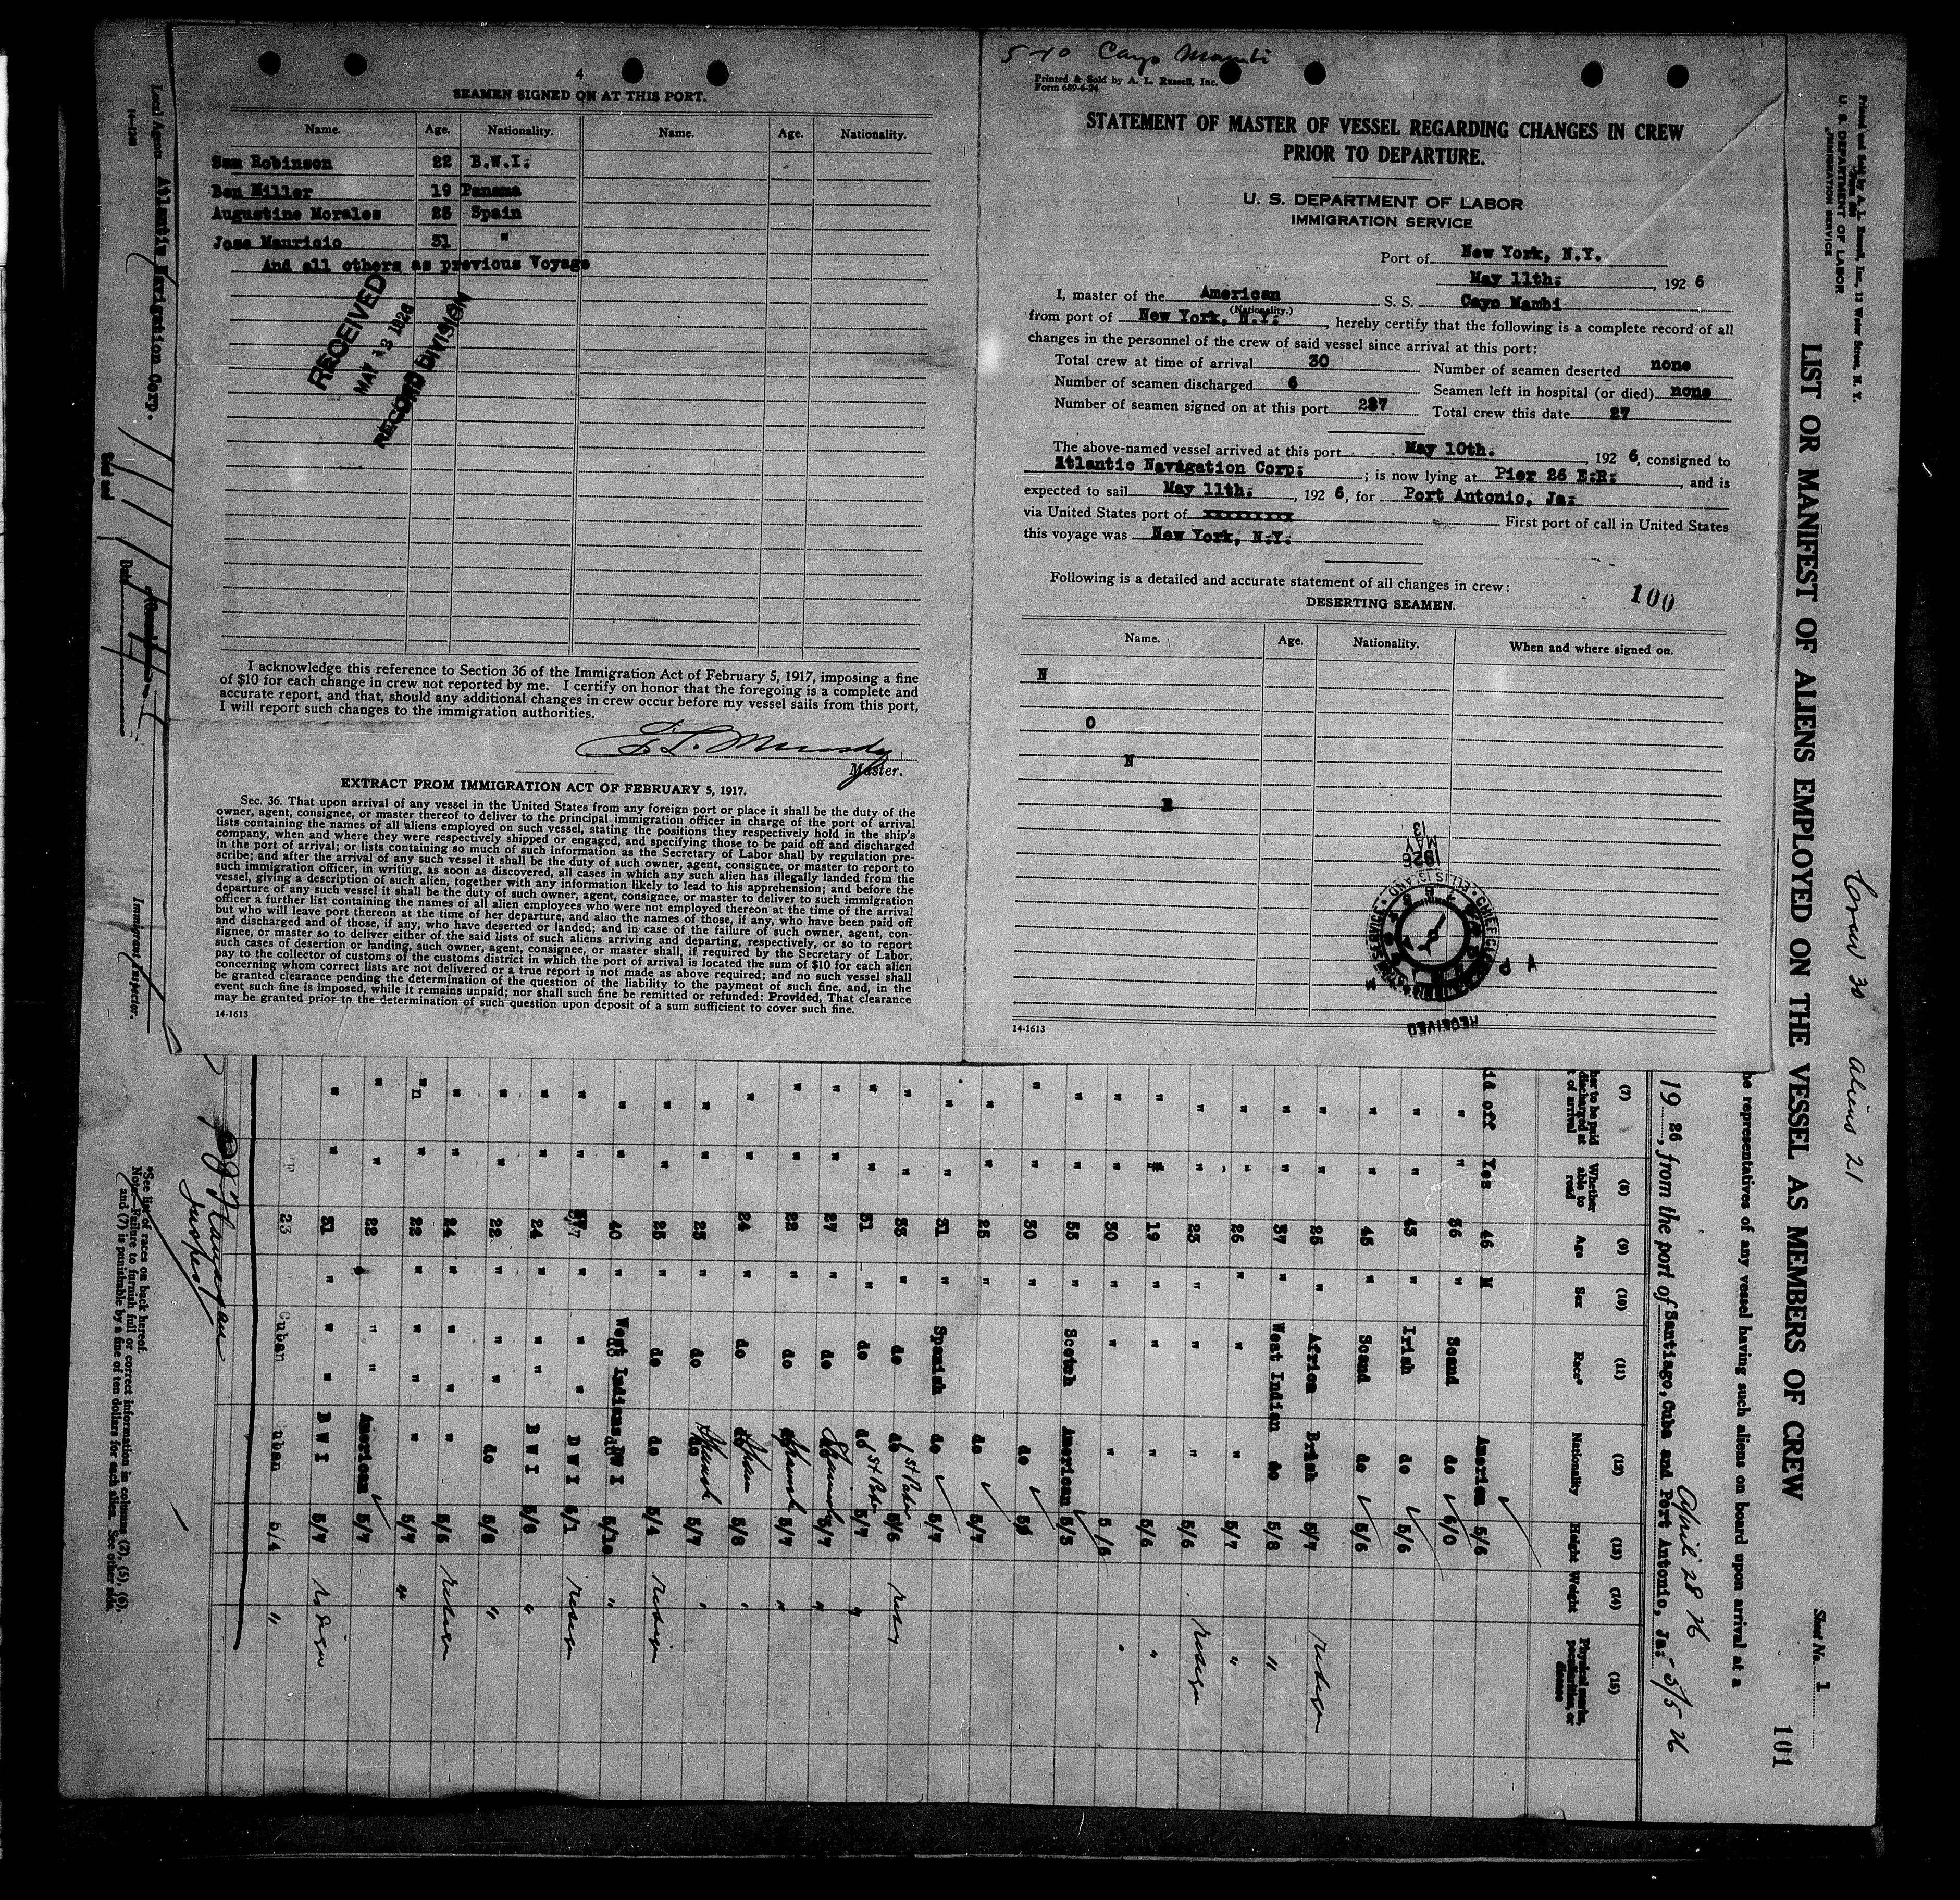 4
SEAMEN SIGNED ON AT THIS PORT.
Name. Age. Nationality. Name. Age. Nationality.
Sam Robinson 22 B.W.I.
Ben Miller 19 Panama
Augustine Morales 25 Spain
Jose Mauricio 31 "
And all others as previous Voyage
RECEIVED
MAY 13 1926
RECORD DIVISION
I acknowledge this reference to Section 36 of the Immigration Act of February 5, 1917, imposing a fine
of $10 for each change in crew not reported by me. I certify on honor that the foregoing is a complete and
accurate report, and that, should any additional changes in crew occur before my vessel sails from this port,
I will report such changes to the immigration authorities.
Master.
EXTRACT FROM IMMIGRATION ACT OF FEBRUARY 5, 1917.
Sec. 36. That upon arrival of any vessel in the United States from any foreign port or place it shall be the duty of the
owner, agent, consignee, or master thereof to deliver to the principal immigration officer in charge of the port of arrival
lists containing the names of all aliens employed on such vessel, stating the positions they respectively hold in the ship's
company, when and where they were respectively shipped or engaged, and specifying those to be paid off and discharged
in the port of arrival; or lists containing so much of such information as the Secretary of Labor shall by regulation pre-
scribe; and after the arrival of any such vessel it shall be the duty of such owner, agent, consignee, or master to report to
such immigration officer, in writing, as soon as discovered, all cases in which any such alien has illegally landed from the
vessel, giving a description of such alien, together with any information likely to lead to his apprehension; and before the
departure of any such vessel it shall be the duty of such owner, agent, consignee, or master to deliver to such immigration
officer a further list containing the names of all alien employees who were not employed thereon at the time of the arrival
but who will leave port thereon at the time of her departure, and also the names of those, if any, who have been paid off
and discharged and of those, if any, who have deserted or landed; and in case of the failure of such owner, agent, con-
signee, or master so to deliver either of the said lists of such aliens arriving and departing, respectively, or so to report
such cases of desertion or landing, such owner, agent, consignee, or master shall, if required by the Secretary of Labor,
pay to the collector of customs of the customs district in which the port of arrival is located the sum of $10 for each alien
concerning whom correct lists are not delivered or a true report is not made as above required; and no such vessel shall
be granted clearance pending the determination of the question of the liability to the payment of such fine, and, in the
event such fine is imposed, while it remains unpaid; nor shall such fine be remitted or refunded: Provided, That clearance
may be granted prior to the determination of such question upon deposit of a sum sufficient to cover such fine.
14-1613
5-10 Cayo Mambi
Printed & Sold by A. L. Russell, Inc.
Form 689-6-24
STATEMENT OF MASTER OF VESSEL REGARDING CHANGES IN CREW
PRIOR TO DEPARTURE.
U. S. DEPARTMENT OF LABOR
IMMIGRATION SERVICE
Port of New York, N.Y.
May 11th: , 192 6
I, master of the American S. S. Cayo Mambi
(Nationality.)
from port of New York, N.Y: , hereby certify that the following is a complete record of all
changes in the personnel of the crew of said vessel since arrival at this port:
Total crew at time of arrival 30 Number of seamen deserted none
Number of seamen discharged 6 Seamen left in hospital (or died) none
Number of seamen signed on at this port 237 Total crew this date 27
The above-named vessel arrived at this port May 10th. , 192 6, consigned to
Atlantic Navigation Corp: ; is now lying at Pier 26 E.R: , and is
expected to sail May 11th: , 192 6, for Port Antonio, Ja:
via United States port of xxxxxxxxx First port of call in United States
this voyage was New York, N.Y.
Following is a detailed and accurate statement of all changes in crew:
100
DESERTING SEAMEN.
Name. Age. Nationality. When and where signed on.
N
O
N
E
MAY 13
1926
ELLIS ISLAND
RECEIVED
14-1613
Printed and Sold by A. L. Russell, Inc., 13 Water Street, N. Y.
U. S. DEPARTMENT OF LABOR
IMMIGRATION SERVICE
LIST OR MANIFEST OF ALIENS EMPLOYED ON THE VESSEL AS MEMBERS OF CREW
Crew 30 Aliens 21
Sheet No. 1
101
he representatives of any vessel having such aliens on board upon arrival at a
April 28 26 - 5/5 26
19 26, from the port of Santiago, Cuba and Port Antonio, Ja:
(7) (8) (9) (10) (11) (12) (13) (14) (15)
her to be paid discharged at t of arrival Whether able to read Age Sex Race* Nationality Height Weight Physical marks, peculiarities, or disease
id off Yes 46 M American 5/6
" " 36 " Scand do 6/0
" " 43 " Irish do 5/6
" " 45 " Scand do 5/6
" " 25 " African Brish 5/7
" " 37 " West Indian do 5/8 "
" " 26 " " " 5/7 "
" " 23 " " " 5/6
" " 19 " " " 5/6 "
" " 30 " " " 5/6
" " 55 " Scotch American 5/5
" " 30 " do
" " 25 " do 5/7
" " 31 " Spanish do 5/7
" " 33 " do do 5/6
" " 31 " do do 5/7 "
" " 27 " do Spanish 5/7 "
" " 22 " do Spanish 5/7 "
" " 24 " do Spain 5/8 "
" " 23 " do Spanish 5/7 "
" " 25 " do do 5/4
" " 40 " West Indians B W I 5/10 "
" " 37 " " " D W I 6/1
" " 24 " " " B W I 5/8 "
" " 22 " " " do 5/8 "
" " 24 " " " " 5/6
" " 22 " " " " 5/7 "
" " 22 " " " American 5/7
" " 31 " " " B W I 5/7
23 Cuban uban 5/4 "
Inspector
Local Agents Atlantic Navigation Corp.
14-1240
Date
Immigrant Inspector.
*See list of races on back hereof.
Note.—Failure to furnish full or correct information in columns (2), (5), (6),
and (7) is punishable by a fine of ten dollars for each alien. See other side.